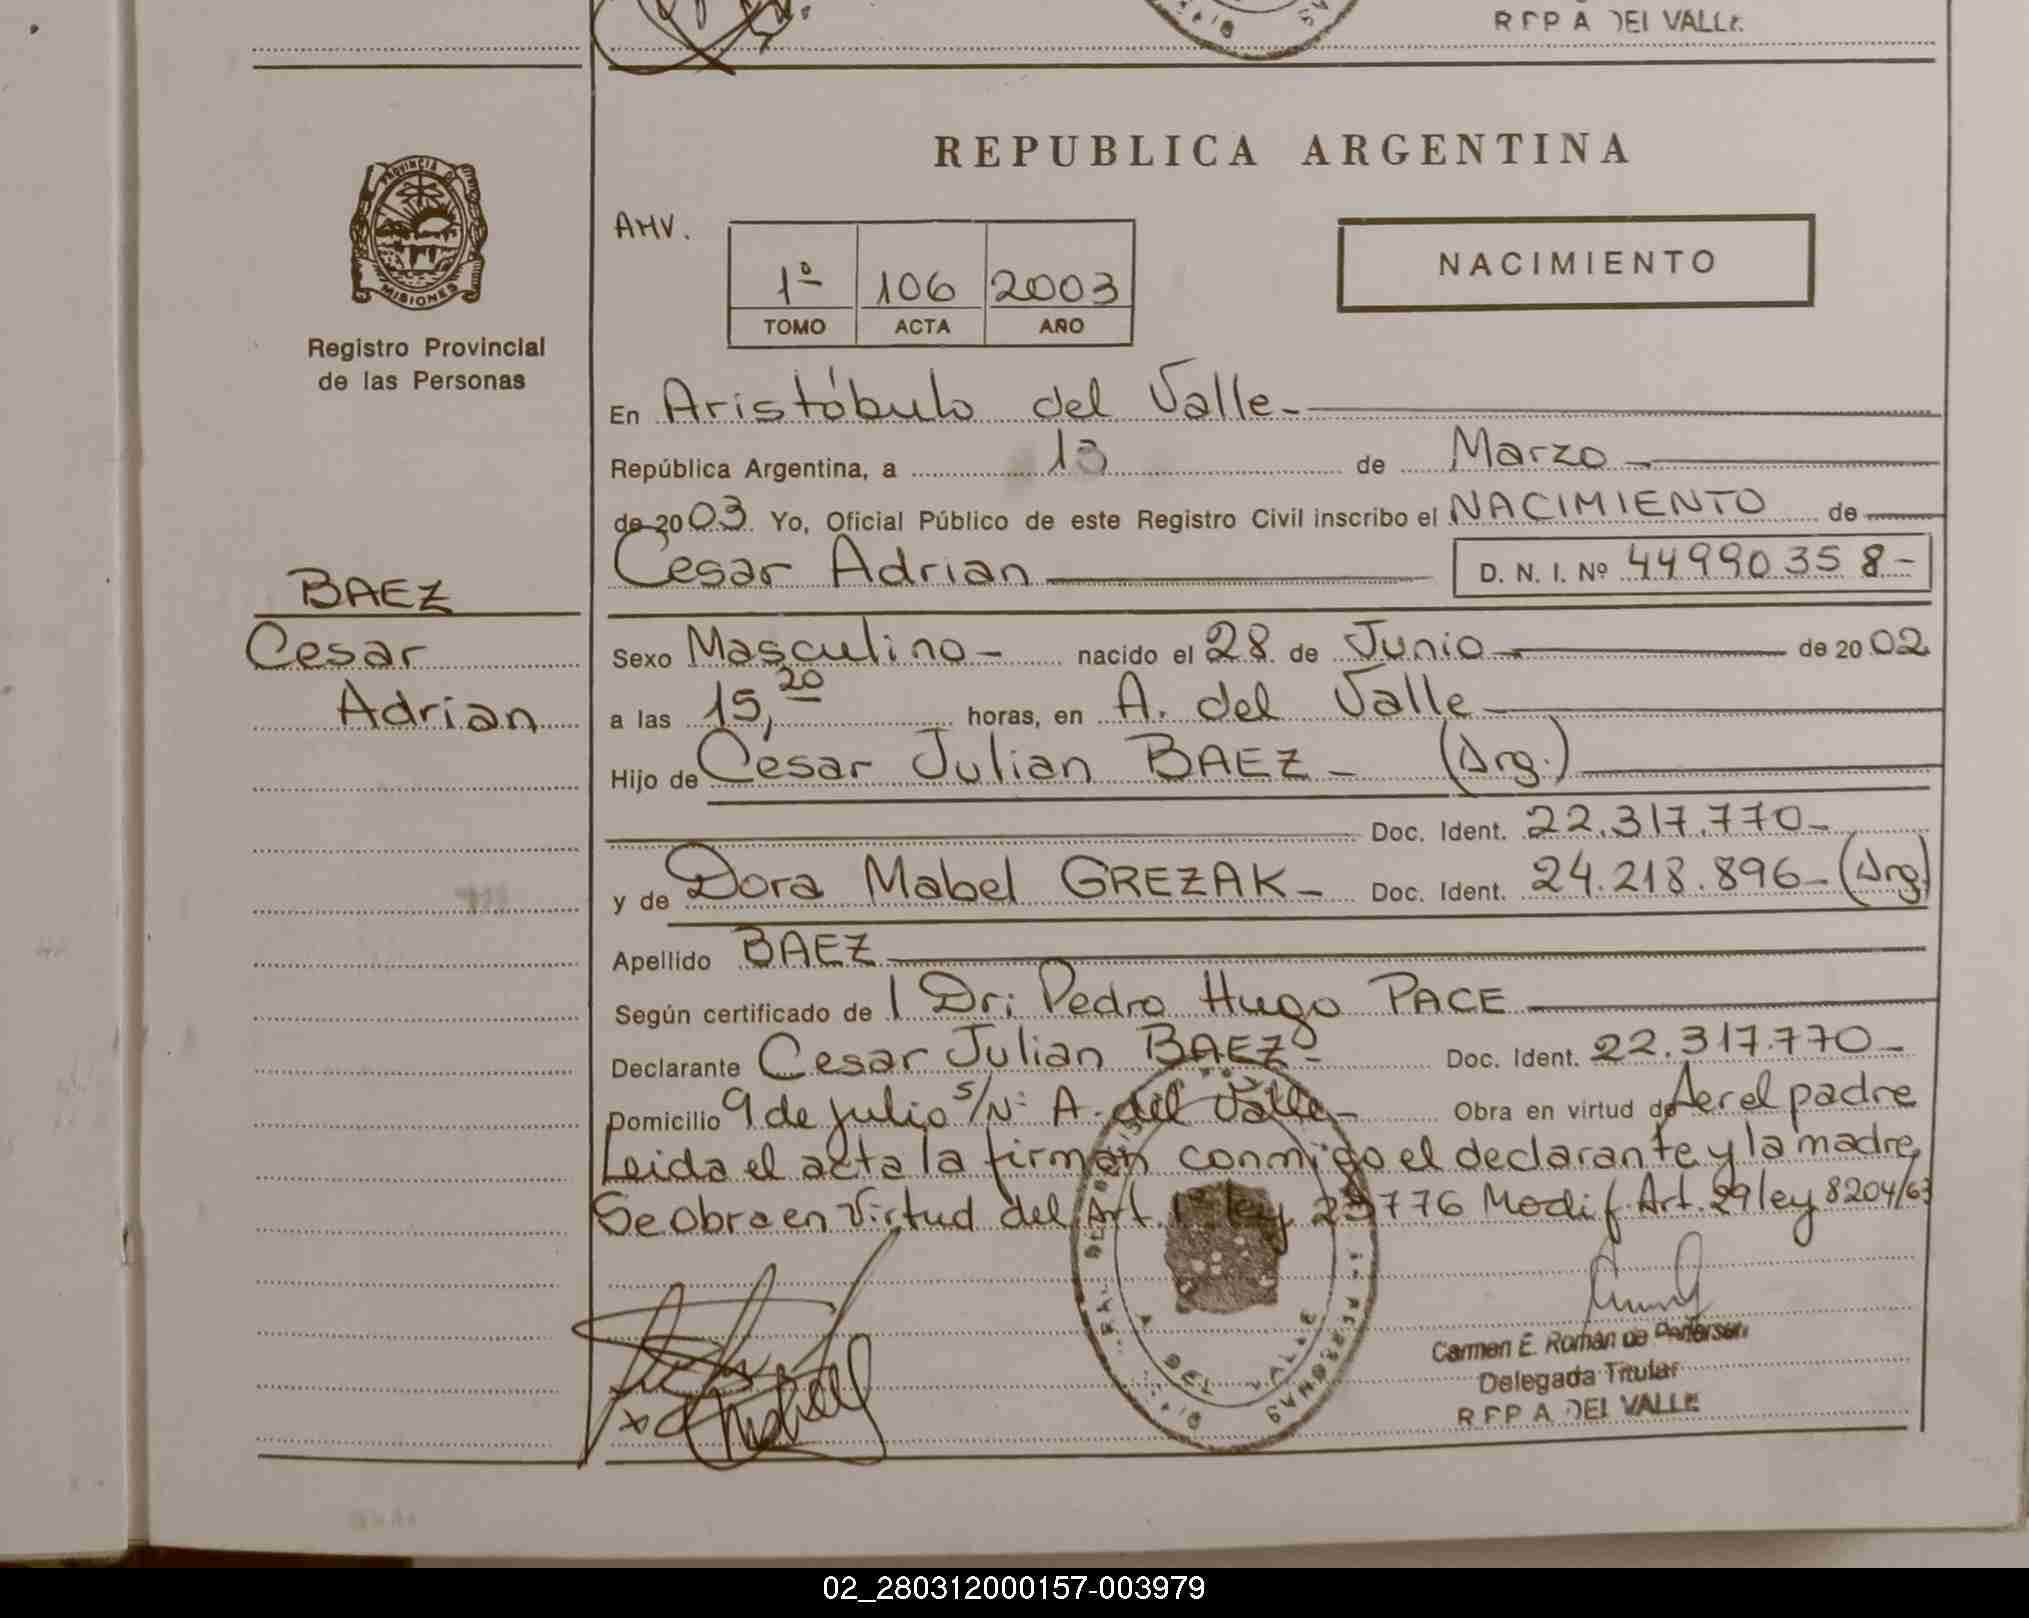 DEL VALLE
REPUBLICA ARGENTINA
PROVINCIA DE
MISIONES
Registro Provincial
de las Personas
AHV.
1º 106 2003
TOMO ACTA AÑO
NACIMIENTO
En Aristóbulo del Valle-
República Argentina, a 13 de Marzo
de 2003. Yo, Oficial Público de este Registro Civil inscribo el NACIMIENTO de
Cesar Adrian D. N. I. Nº 44990358-
BAEZ
Cesar
Adrian
Sexo Masculino- nacido el 28 de Junio de 2002
a las 15,20 horas, en A. del Valle
Hijo de Cesar Julian BAEZ- (Arg.)
Doc. Ident. 22.317.770-
y de Dora Mabel GREZAK- Doc. Ident. 24.218.896-(Arg)
Apellido BAEZ
Según certificado de l Dr; Pedro Hugo PACE
Declarante Cesar Julian BAEZ- Doc. Ident. 22.317.770-
Domicilio 9 de julio s/Nº A. del Valle- Obra en virtud de ser el padre
Leida el acta la firman conmigo el declarante y la madre,
Se obra en Virtud del Art. 1º ley 23776 Modif. Art. 29 ley 8204/63
Carmen E. Román de Pedersen
Delegada Titular
DEL VALLE
A DEL VALLE
PERSONAS
02_280312000157-003979